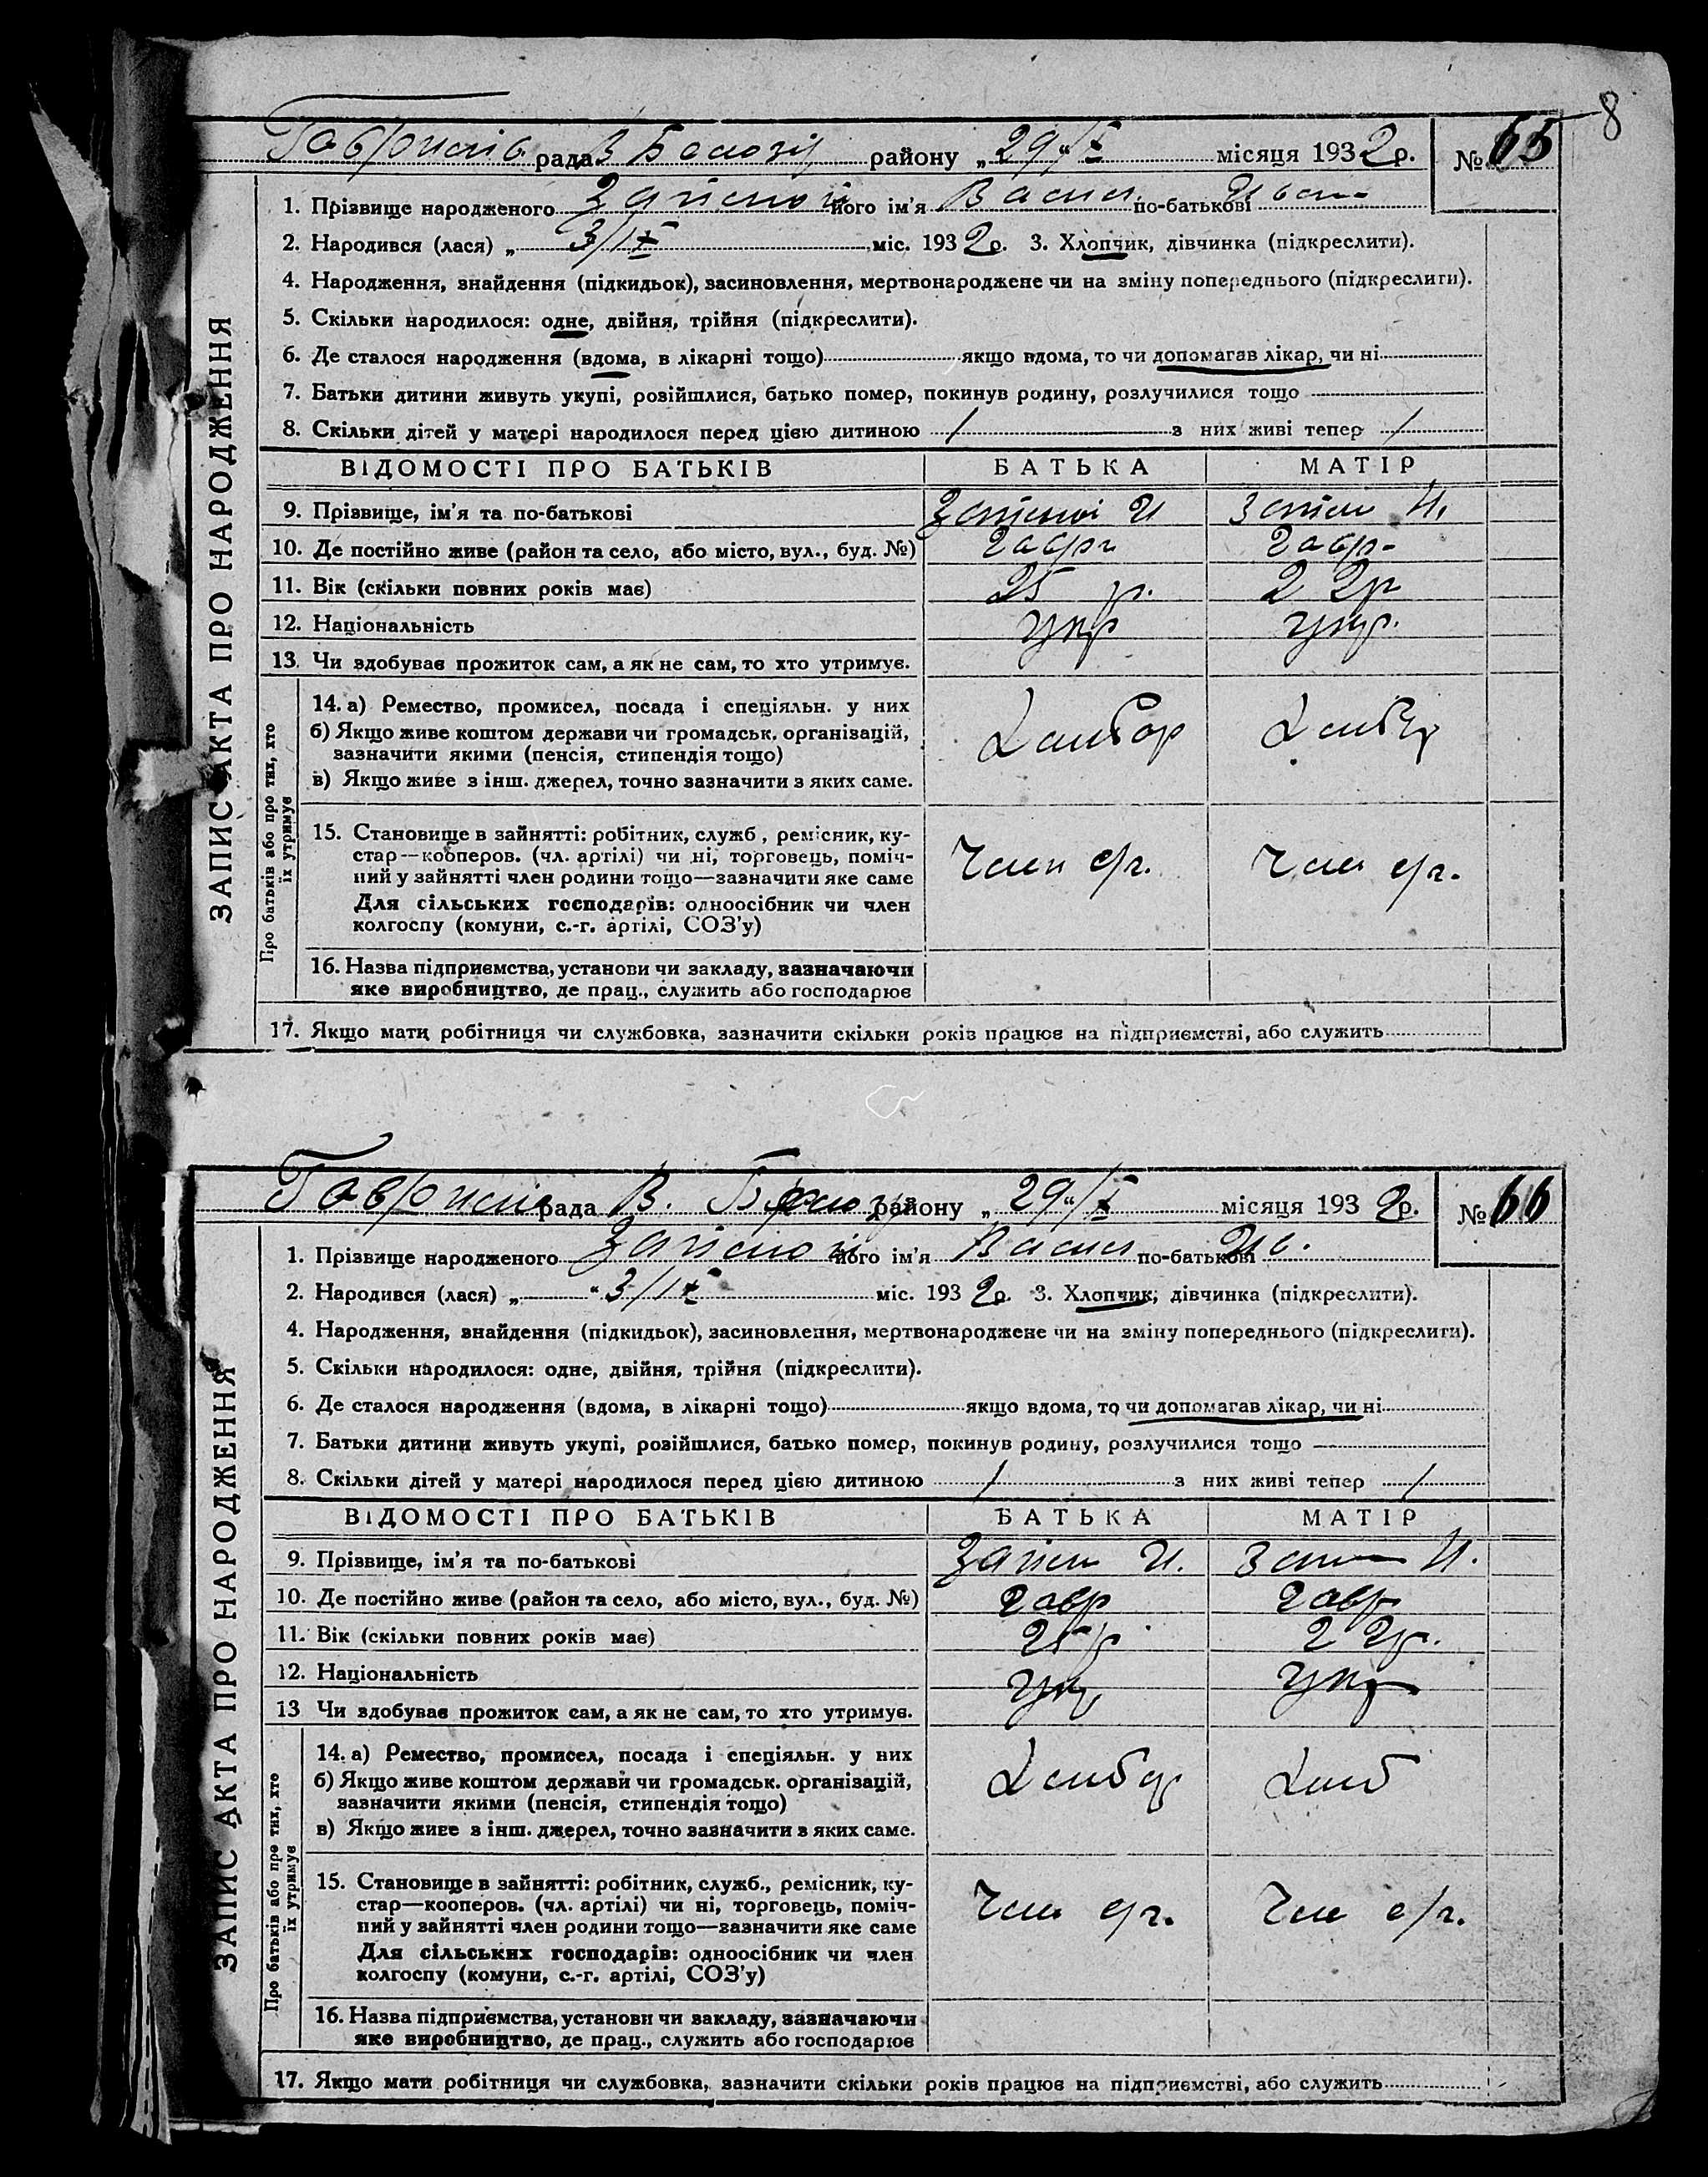 8
рада В. району „29“/X місяця 1932р. № 65
ЗАПИС АКТА ПРО НАРОДЖЕННЯ
1. Прізвище народженого його ім'я Васил по-батькові Иван
2. Народився (лася) „ 3/IX міс. 1932р. 3. Хлопчик, дівчинка (підкреслити).
4. Народження, знайдення (підкидьок), засиновлення, мертвонароджене чи на зміну попереднього (підкреслити).
5. Скільки народилося: одне, двійня, трійня (підкреслити).
6. Де сталося народження (вдома, в лікарні тощо) якщо вдома, то чи допомагав лікар, чи ні
7. Батьки дитини живуть укупі, розійшлися, батько помер, покинув родину, розлучилися тощо
8. Скільки дітей у матері народилося перед цією дитиною / з них живі тепер /
ВІДОМОСТІ ПРО БАТЬКІВ БАТЬКА МАТІР
9. Прізвище, ім'я та по-батькові И Н.
10. Де постійно живе (район та село, або місто, вул., буд. №) Гавр Гавр.
11. Вік (скільки повних років має) 25 р. 22р
12. Національність укр укр.
13. Чи здобував прожиток сам, а як не сам, то хто утримує.
Про батьків або про тих, хто їх утримує
14. а) Ремество, промисел, посада і спеціяльн. у них
б) Якщо живе коштом держави чи громадськ. організацій,
зазначити якими (пенсія, стипендія тощо)
в) Якщо живе з інш. джерел, точно зазначити з яких саме.
Хлибор Хлибор
15. Становище в зайнятті: робітник, служб., ремісник, ку-
стар—кооперов. (чл. артілі) чи ні, торговець, поміч-
ний у зайнятті член родини тощо—зазначити яке саме
Для сільських господарів: одноосібник чи член
колгоспу (комуни, с.-г. артілі, СОЗ'у)
Член с/г. Член с/г.
16. Назва підприємства, установи чи закладу, зазначаючи
яке виробництво, де прац., служить або господарює
17. Якщо мати робітниця чи службовка, зазначити скільки років працює на підприємстві, або служить
рада В. району „29“/X місяця 1932р. № 66
ЗАПИС АКТА ПРО НАРОДЖЕННЯ
1. Прізвище народженого його ім'я Васил по-батькові Ив.
2. Народився (лася) „ 3/IX міс. 1932р. 3. Хлопчик, дівчинка (підкреслити).
4. Народження, знайдення (підкидьок), засиновлення, мертвонароджене чи на зміну попереднього (підкреслити).
5. Скільки народилося: одне, двійня, трійня (підкреслити).
6. Де сталося народження (вдома, в лікарні тощо) якщо вдома, то чи допомагав лікар, чи ні
7. Батьки дитини живуть укупі, розійшлися, батько помер, покинув родину, розлучилися тощо
8. Скільки дітей у матері народилося перед цією дитиною / з них живі тепер /
ВІДОМОСТІ ПРО БАТЬКІВ БАТЬКА МАТІР
9. Прізвище, ім'я та по-батькові И. Н.
10. Де постійно живе (район та село, або місто, вул., буд. №) Гавр Гавр
11. Вік (скільки повних років має) 25 р 22р.
12. Національність укр укр
13 Чи здобував прожиток сам, а як не сам, то хто утримує.
Про батьків або про тих, хто їх утримує
14. а) Ремество, промисел, посада і спеціяльн. у них
б) Якщо живе коштом держави чи громадськ. організацій,
зазначити якими (пенсія, стипендія тощо)
в) Якщо живе з інш. джерел, точно зазначити з яких саме.
Хлибор Хлиб
15. Становище в зайнятті: робітник, служб., ремісник, ку-
стар—кооперов. (чл. артілі) чи ні, торговець, поміч-
ний у зайнятті член родини тощо—зазначити яке саме
Для сільських господарів: одноосібник чи член
колгоспу (комуни, с.-г. артілі, СОЗ'у)
Член с/г. Член с/г.
16. Назва підприємства, установи чи закладу, зазначаючи
яке виробництво, де прац., служить або господарює
17. Якщо мати робітниця чи службовка, зазначити скільки років працює на підприємстві, або служить